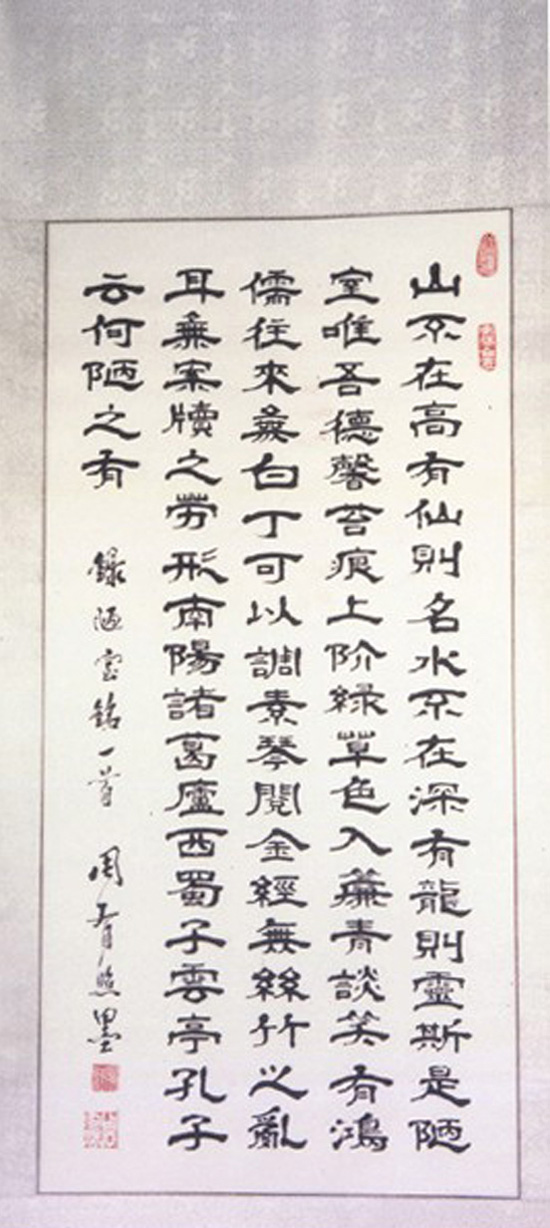 山不在高有仙則名水不在深有龍則靈斯是陋
室唯吾德馨苔痕上阶綠草色入簾青談笑有鴻
儒往來無白丁可以調素琴閱金經無絲竹之亂
耳無案牘之勞形南陽諸葛廬西蜀子雲亭孔子
云何陋之有
錄陋室銘一首
周有熙墨